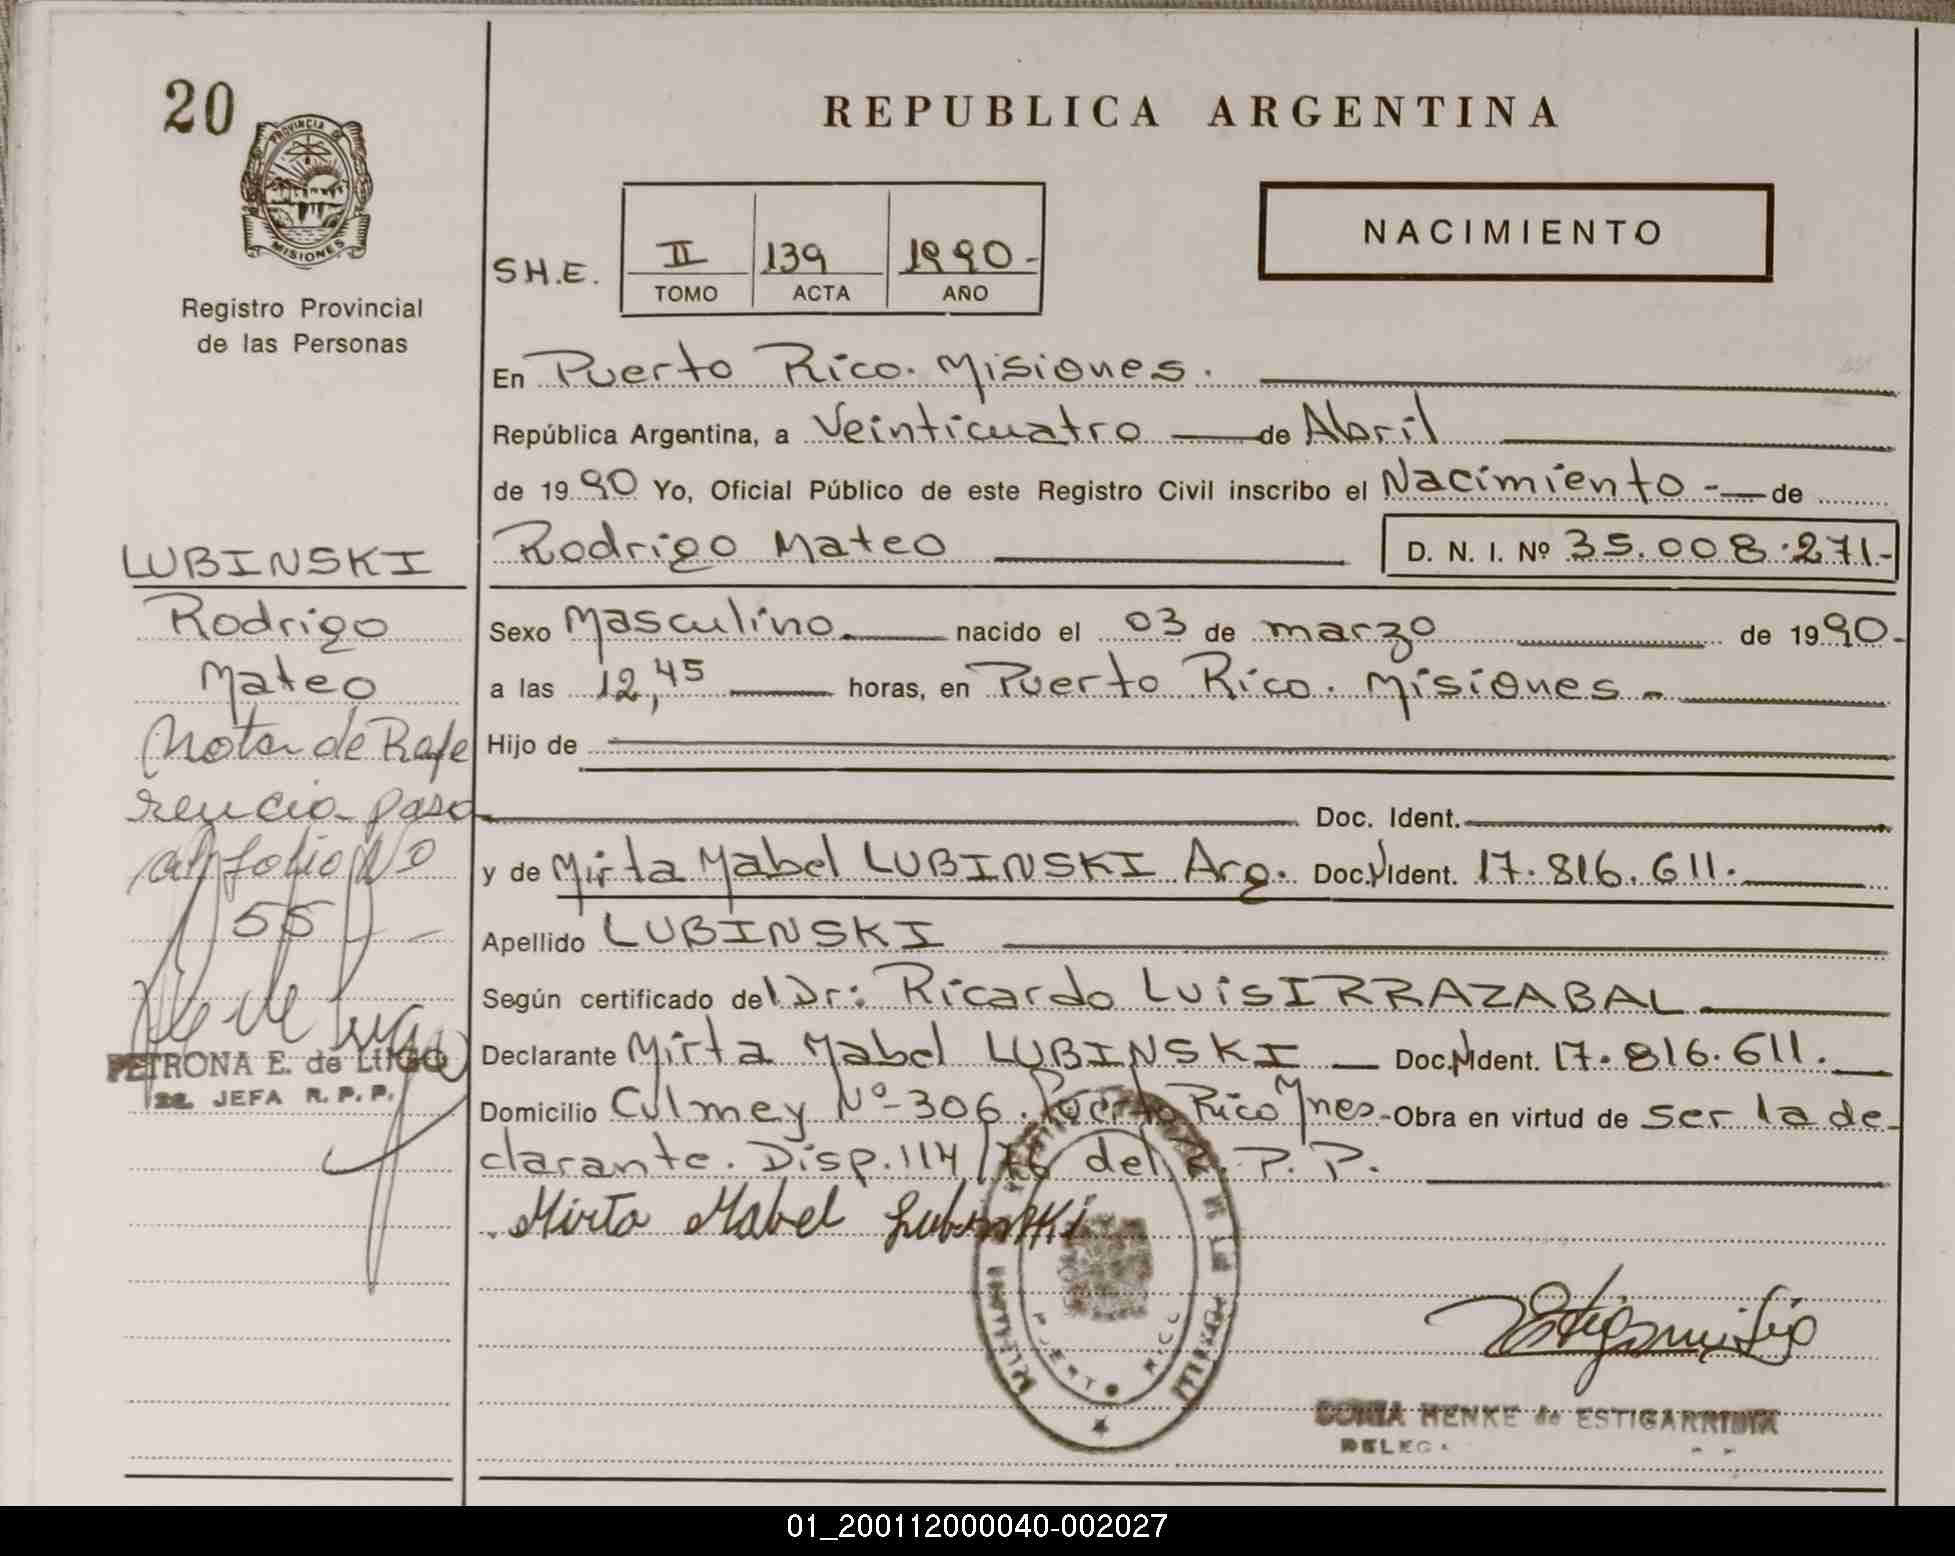 20
PROVINCIA DE
MISIONES
Registro Provincial
de las Personas
REPUBLICA ARGENTINA
NACIMIENTO
S.H.E.
II 139 1990-
TOMO ACTA AÑO
En Puerto Rico. Misiones.
República Argentina, a Veinticuatro de Abril
de 1990 Yo, Oficial Público de este Registro Civil inscribo el Nacimiento - de
Rodrigo Mateo D. N. I. Nº 35.008.271.-
Sexo Masculino. nacido el 03 de marzo de 1990-
a las 12,45 horas, en Puerto Rico. Misiones -
Hijo de
Doc. Ident.
y de Mirta Mabel LUBINSKI Arg. Doc. Ident. 17.816.611.
Apellido LUBINSKI
Según certificado del Dr: Ricardo Luis IRRAZABAL
Declarante Mirta Mabel LUBINSKI Doc. Ident. 17.816.611.
Domicilio Culmey Nº-306. Puerto Rico Mnes.- Obra en virtud de ser la de-
clarante. Disp. 114/76 del R. P. P.
Mirta Mabel Lubinski
PUERTO RICO
SONIA HENKE de ESTIGARRIBIA
LUBINSKI
Rodrigo
Mateo
Nota de Refe
rencia paso
al folio Nº
55
PETRONA E. de LUGO
2a. JEFA R. P. P.
01_200112000040-002027